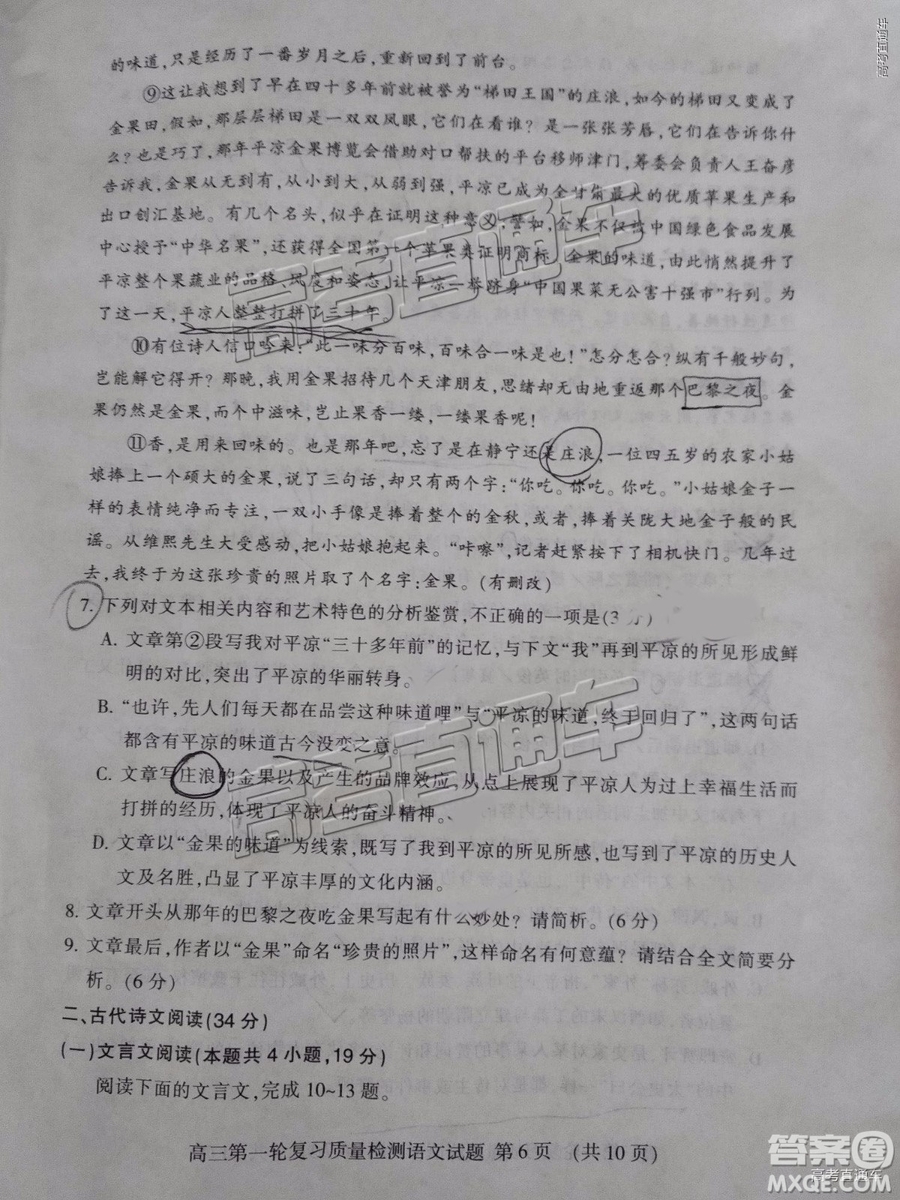 的味道，只是经历了一番岁月之后，重新回到了前台。
⑨这让我想到了早在四十多年前就被誉为“梯田王国”的庄浪，如今的梯田又变成了
金果田，假如，那层层梯田是一双双凤眼，它们在看谁？是一张张芳唇，它们在告诉你什
么？也是巧了，那年平凉金果博览会借助对口帮扶的平台移师津门，筹委会负责人王奋彦
告诉我，金果从无到有，从小到大，从弱到强，平凉已成为全甘肃最大的优质苹果生产和
出口创汇基地。有几个名头，似乎在证明这种意义，譬如，金果不仅被中国绿色食品发展
中心授予“中华名果”，还获得全国第一个苹果类证明商标。金果的味道，由此悄然提升了
平凉整个果蔬业的品格、风度和姿态，让平凉一举跻身“中国果菜无公害十强市”行列。为
了这一天，平凉人整整打拼了三十年。
⑩有位诗人信中吟来：“此一味分百味，百味合一味是也！”怎分怎合？纵有千般妙句，
岂能解它得开？那晚，我用金果招待几个天津朋友，思绪却无由地重返那个巴黎之夜。金
果仍然是金果，而个中滋味，岂止果香一缕，一缕果香呢！
⑪香，是用来回味的。也是那年吧，忘了是在静宁还是庄浪，一位四五岁的农家小姑
娘捧上一个硕大的金果，说了三句话，却只有两个字：“你吃。你吃。你吃。”小姑娘金子一
样的表情纯净而专注，一双小手像是捧着整个的金秋，或者，捧着关陇大地金子般的民
谣。从维熙先生大受感动，把小姑娘抱起来。“咔嚓”，记者赶紧按下了相机快门。几年过
去，我终于为这张珍贵的照片取了个名字：金果。（有删改）
7. 下列对文本相关内容和艺术特色的分析鉴赏，不正确的一项是(3 分)
A. 文章第②段写我对平凉“三十多年前”的记忆，与下文“我”再到平凉的所见形成鲜
明的对比，突出了平凉的华丽转身。
B. “也许，先人们每天都在品尝这种味道哩”与“平凉的味道，终于回归了”，这两句话
都含有平凉的味道古今没变之意。
C. 文章写庄浪的金果以及产生的品牌效应，从点上展现了平凉人为过上幸福生活而
打拼的经历，体现了平凉人的奋斗精神。
D. 文章以“金果的味道”为线索，既写了我到平凉的所见所感，也写到了平凉的历史人
文及名胜，凸显了平凉丰厚的文化内涵。
8. 文章开头从那年的巴黎之夜吃金果写起有什么妙处？请简析。(6 分)
9. 文章最后，作者以“金果”命名“珍贵的照片”，这样命名有何意蕴？请结合全文简要分
析。(6 分)
二、古代诗文阅读(34 分)
(一)文言文阅读(本题共 4 小题，19 分)
阅读下面的文言文，完成 10~13 题。
高三第一轮复习质量检测语文试题 第 6 页 (共 10 页)
高考直通车
高考直通车
高考直通车
答案圈
MXQE.COM
高考直通车